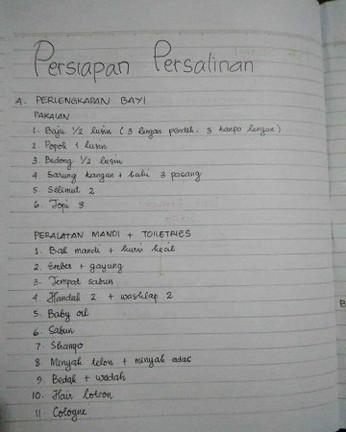 Persiapan Persalinan
A. PERLENGKAPAN BAYI
PAKAIAN
1. Baju 1/2 lusin (3 lengan pendek, 3 tanpa lengan)
2. Popok 1 lusin
3. Bedong 1/2 lusin
4. Sarung tangan + kaki 3 pasang
5. Selimut 2
6. Topi 3
PERALATAN MANDI + TOILETRIES
1. Bak mandi + kursi kecil
2. Ember + gayung
3. Tempat sabun
4. Handuk 2 + washlap 2
5. Baby oil
6. Sabun
7. Shampo
8. Minyak telon + minyak adas
9. Bedak + wadah
10. Hair lotion
11. Cologne
B